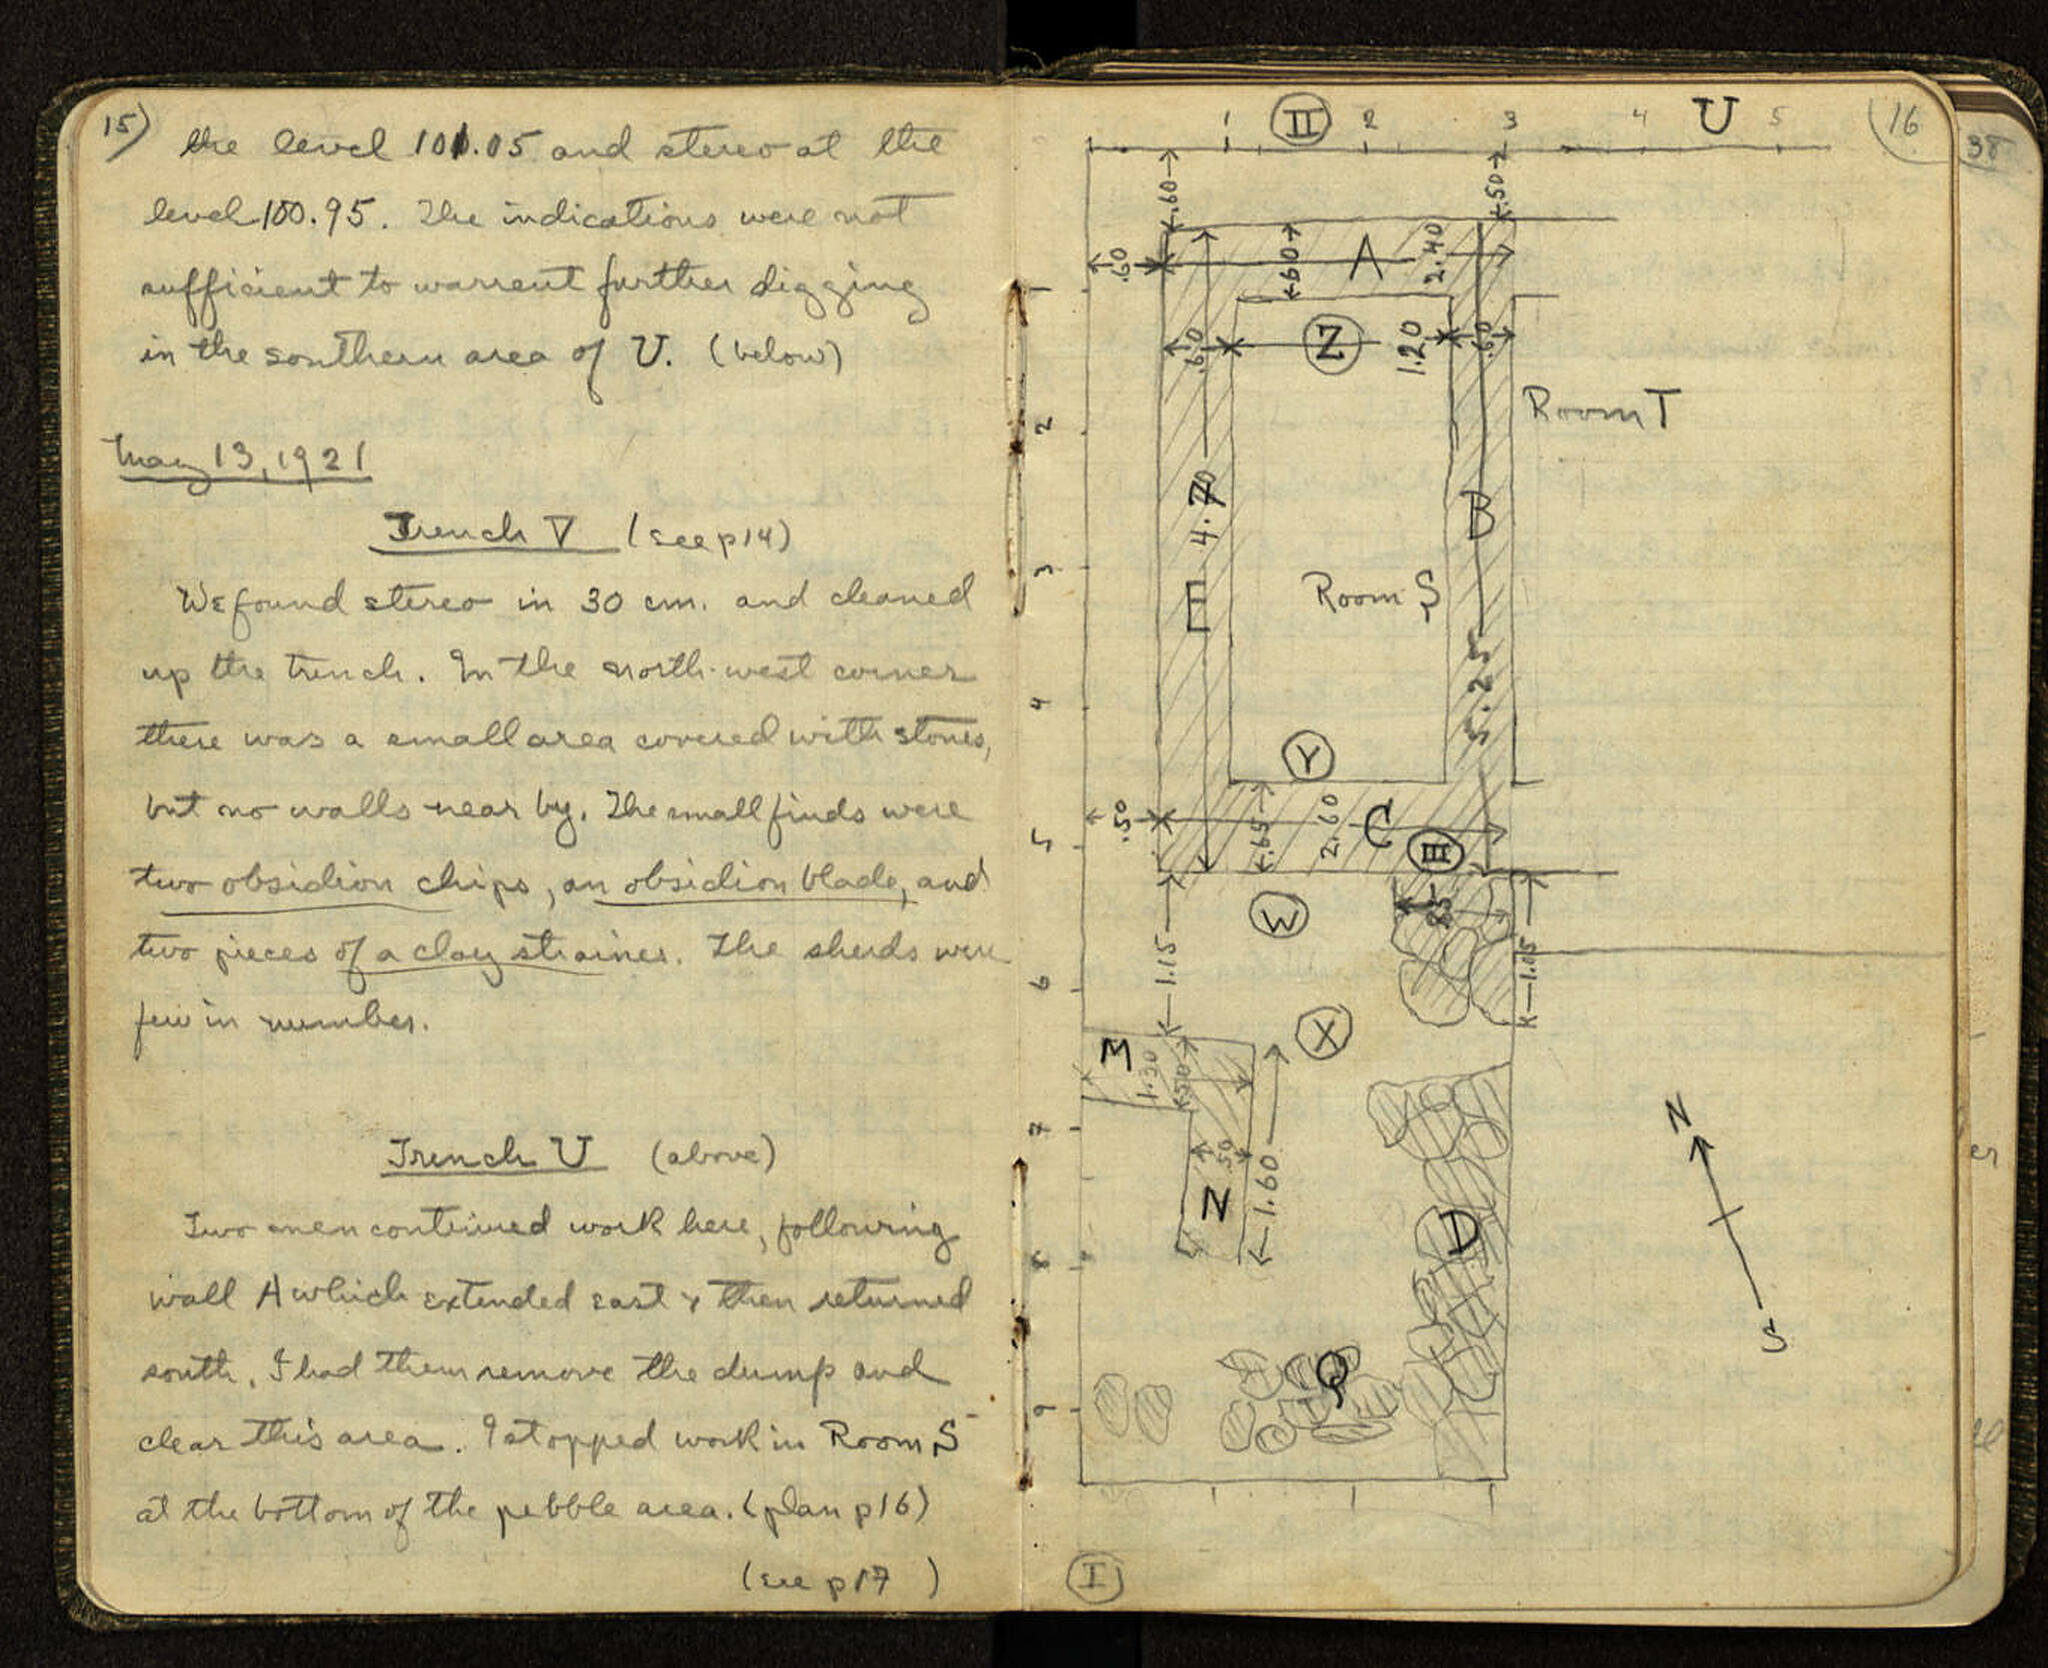 15)
the level 101.05 and stereo at the
level 100.95. The indications were not
sufficient to warrent further digging
in the southern area of U. (below)
May 13, 1921
Trench V (see p14)
We found stereo in 30 cm. and cleaned
up the trench. In the north-west corner
there was a small area covered with stones,
but no walls near by. The small finds were
two obsidion chips, an obsidion blade, and
two pieces of a clay strainer. The sherds were
few in number.
Trench U (above)
Two men continued work here, following
wall A which extended east & then returned
south. I had them remove the dump and
clear this area. I stopped work in Room S
at the bottom of the pebble area. (plan p16)
(see p17 )
1 II 2 3 4 U 5
16
38
.60 .50
.60 .60 A 2.40
1
.60 Z 1.20 .60
Room T
2
4.70 B
3
E Room S
5.25
4
Y
.50 .65 2.60 C III
5
W .85
1.15 1.05
6
X
M 1.30 .50
7
.50 1.60
N D
8
N
S
Q
9
I